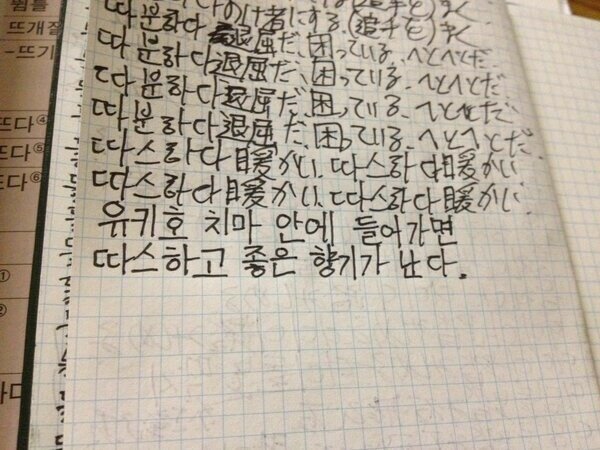 뜀틀
뜨개질
-뜨기
뜨다④
뜨다⑤
뜨다⑥
①
②
の け者にする.(追手を)まく
따분하다 退屈だ、困っている、へとへとだ.
따분하다 退屈だ、困っている、へとへとだ.
따분하다 退屈だ、困っている、へとへとだ.
따분하다 退屈だ、困っている、へとへとだ.
따스하다 暖かい. 따스하다 暖かい.
따스하다 暖かい. 따스하다 暖かい.
유키호 치마 안에 들어가면
따스하고 좋은 향기가 난다.